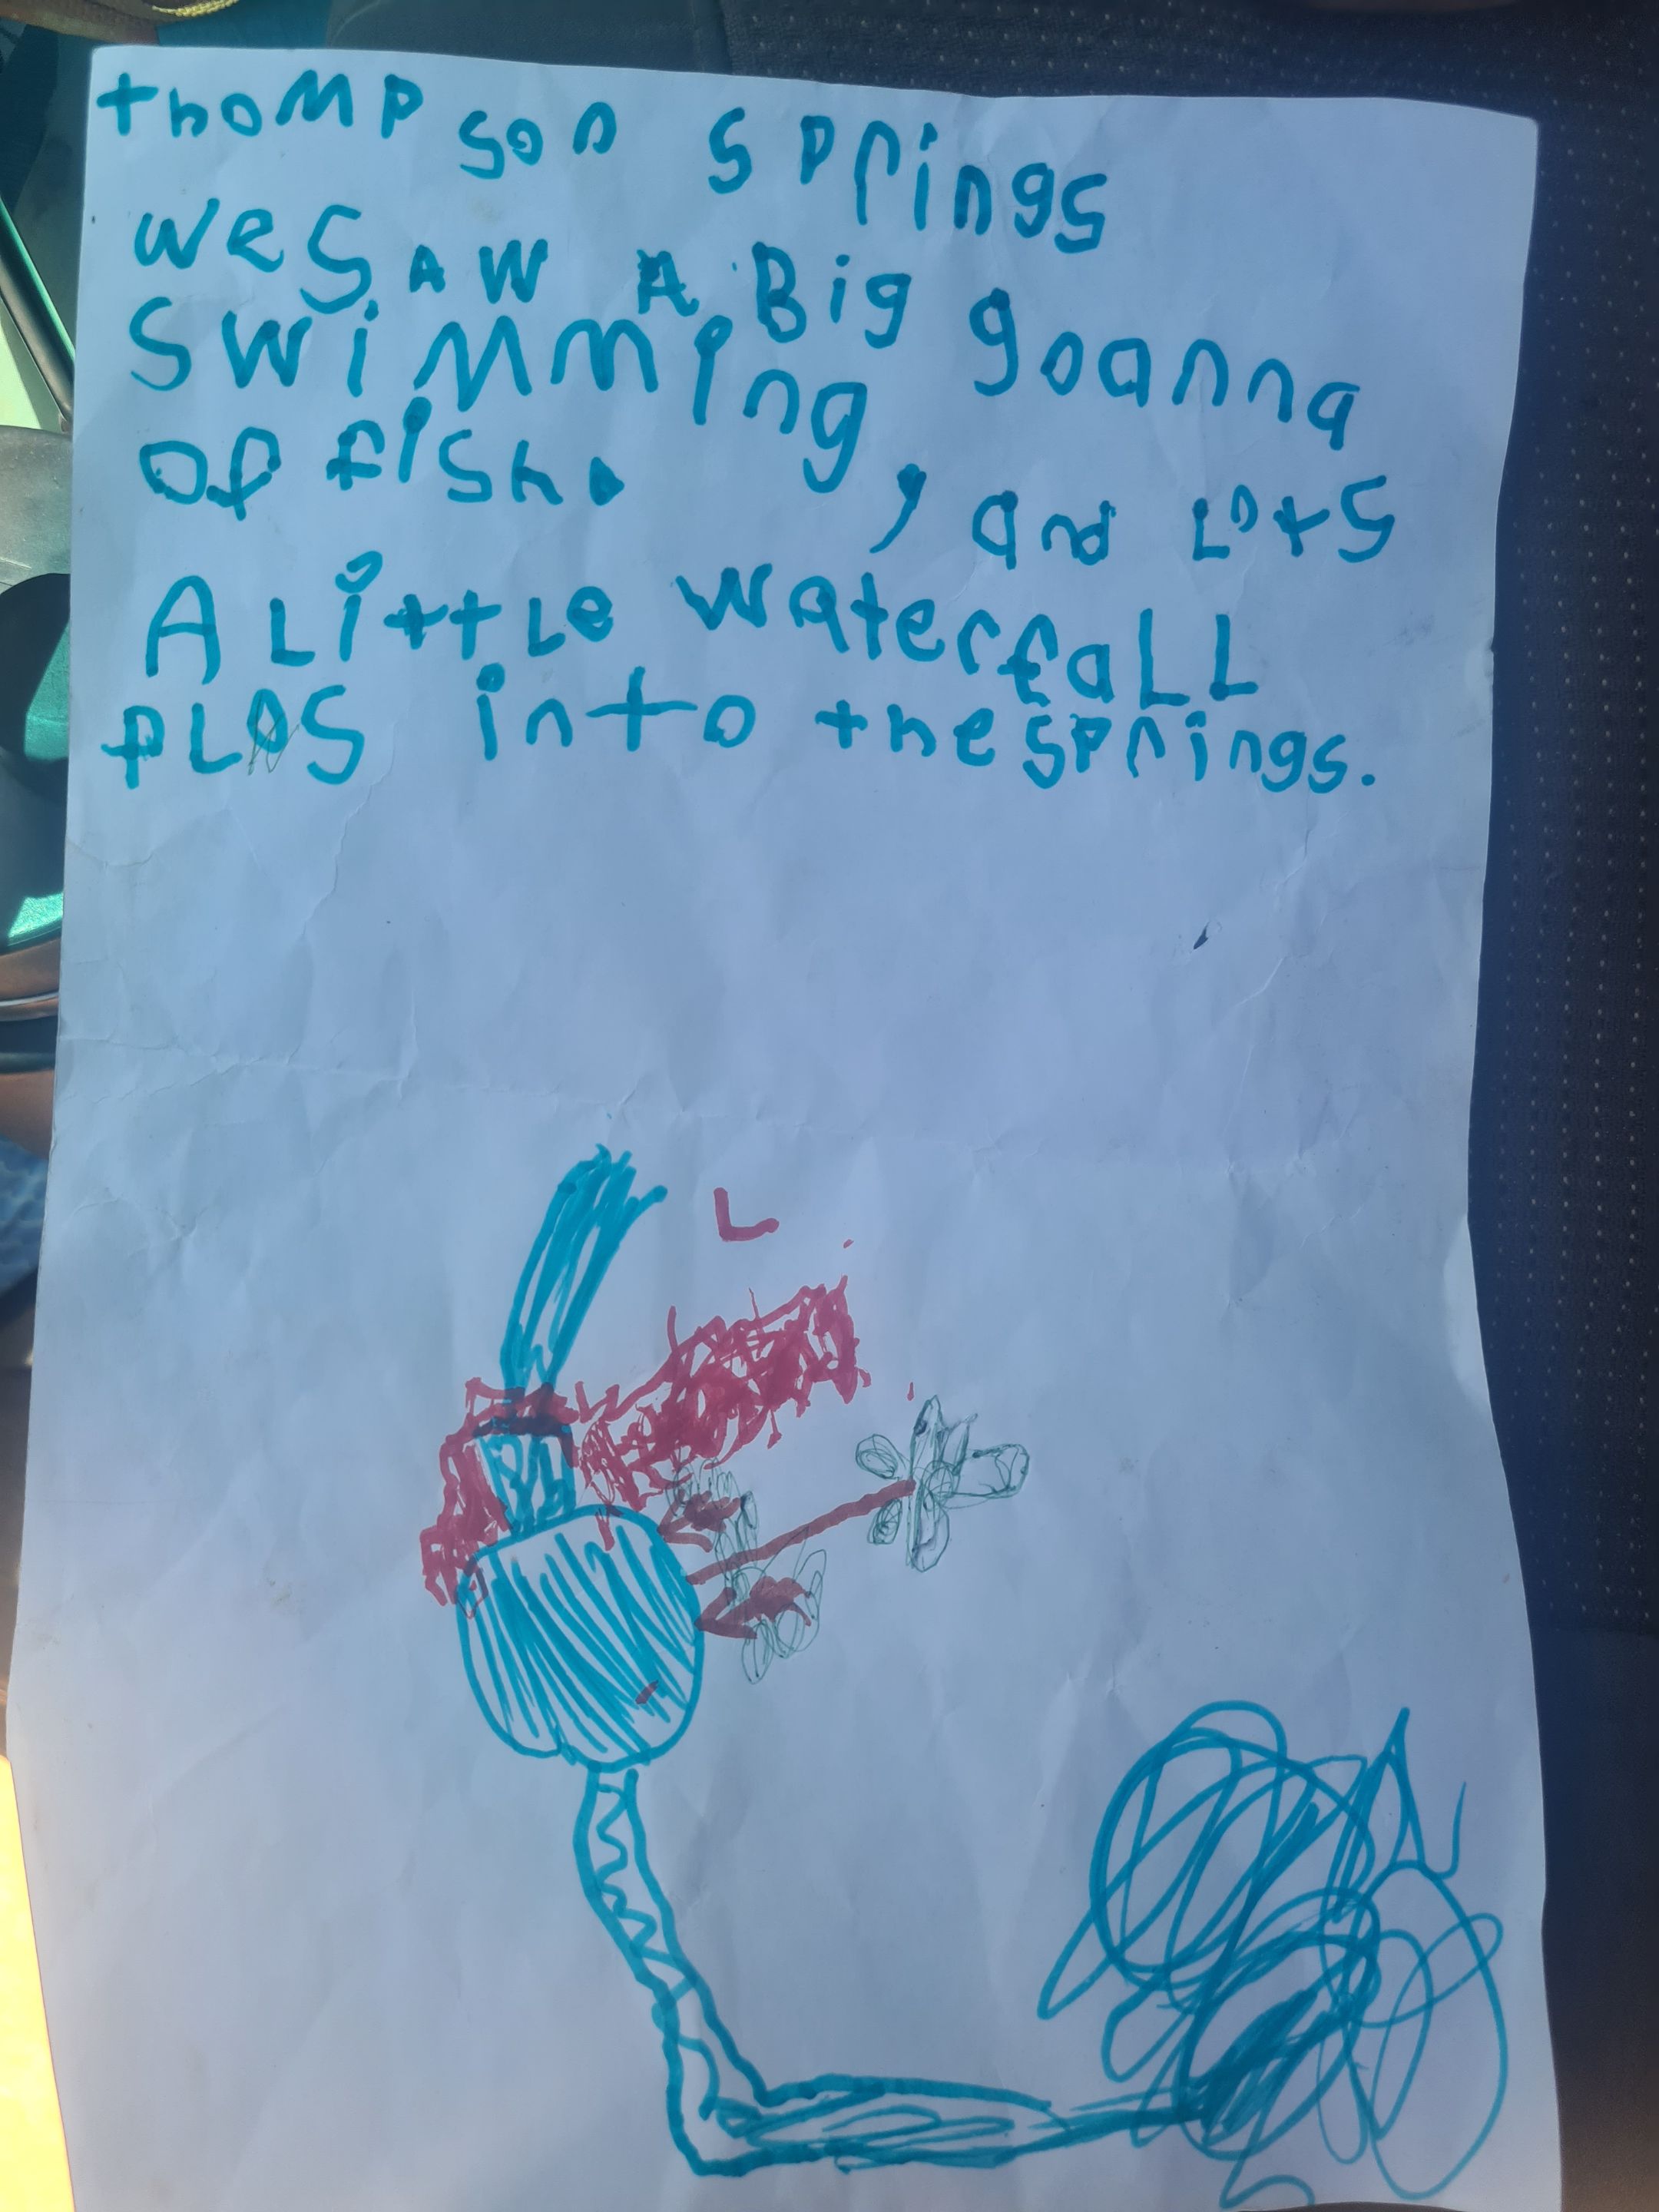 thoMPson sPrings
we SAW A Big goanna
SwiMming, and Lots
of fish.
A LittLe waterfaLL
fLos into the sPrings.
L